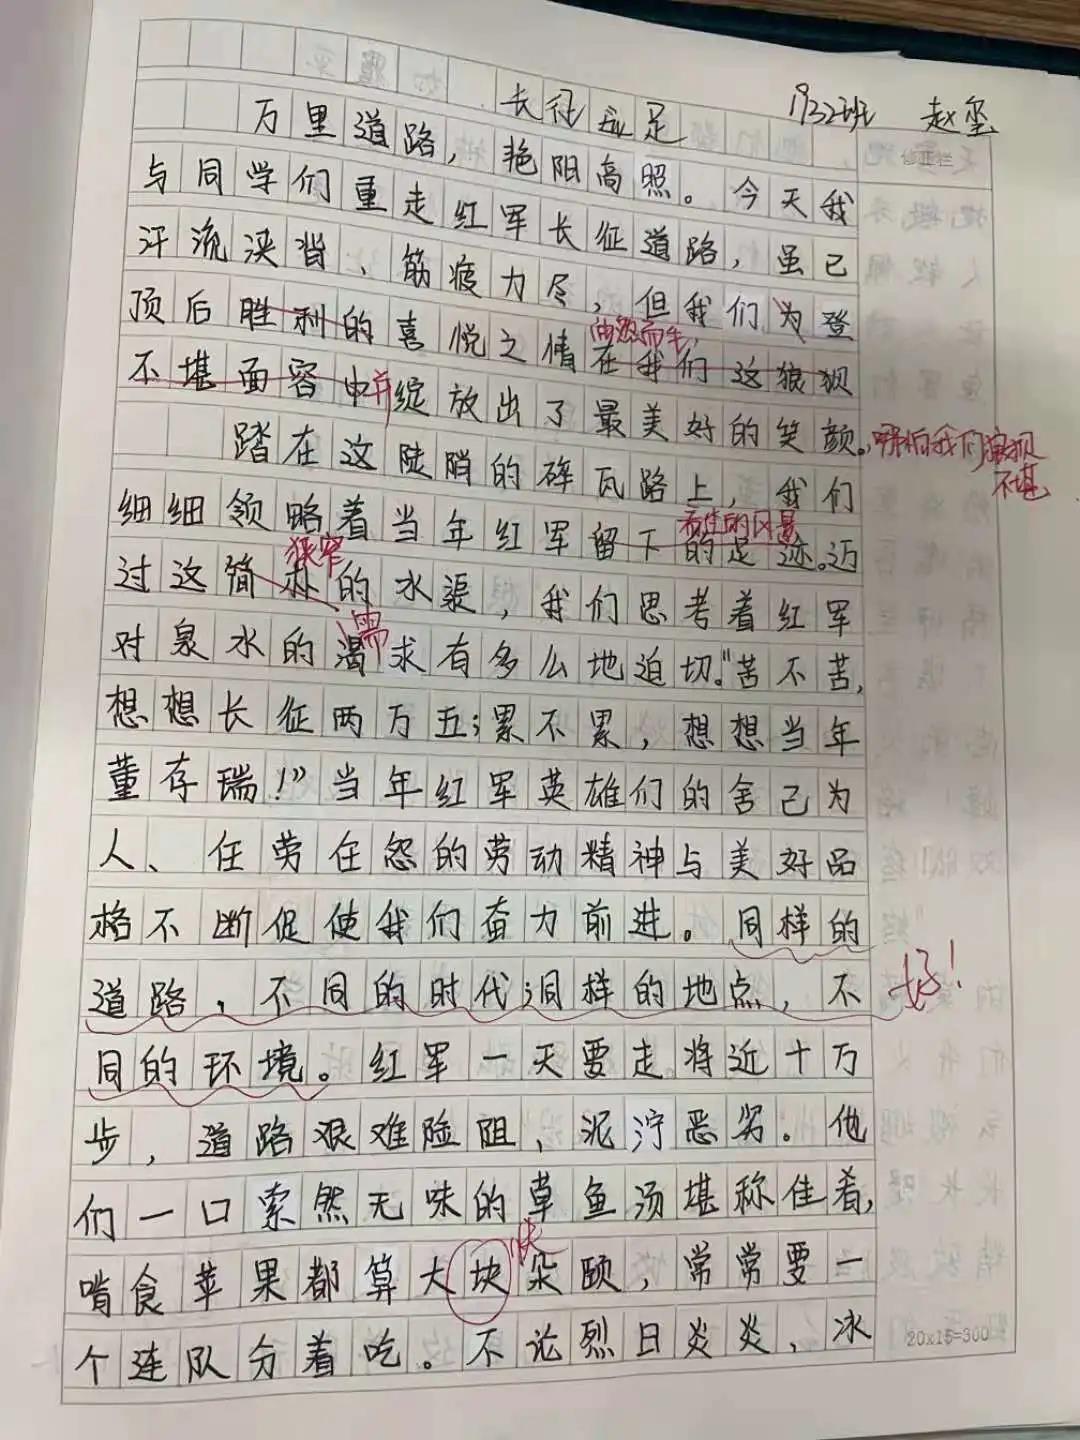 长征 足 1932班 赵玺
万里道路，艳阳高照。今天我
修正栏
与同学们重走红军长征道路，虽已
汗流浃背、筋疲力尽，但我们为登
顶后胜利的喜悦之情在我们这狼狈
由然而生，
不堪面容中并绽放出了最美好的笑颜。哪怕我们狼狈
不堪
踏在这陡陗的碎瓦路上，我们
细细领略着当年红军留下的足迹。迈
的风景
狭窄
过这简朴的水渠，我们思考着红军
需
对泉水的渴求有多么地迫切。"苦不苦，
想想长征两万五；累不累，想想当年
董存瑞！"当年红军英雄们的舍己为
人、任劳任怨的劳动精神与美好品
格不断促使我们奋力前进。同样的
道路，不同的时代；同样的地点，不
好！
同的环境。红军一天要走将近十万
步，道路艰难险阻、泥泞恶劣。他
们一口索然无味的草鱼汤堪称佳肴，
快
啃食苹果都算大块朵颐，常常要一
个连队分着吃。不论烈日炎炎、冰
20x15=300